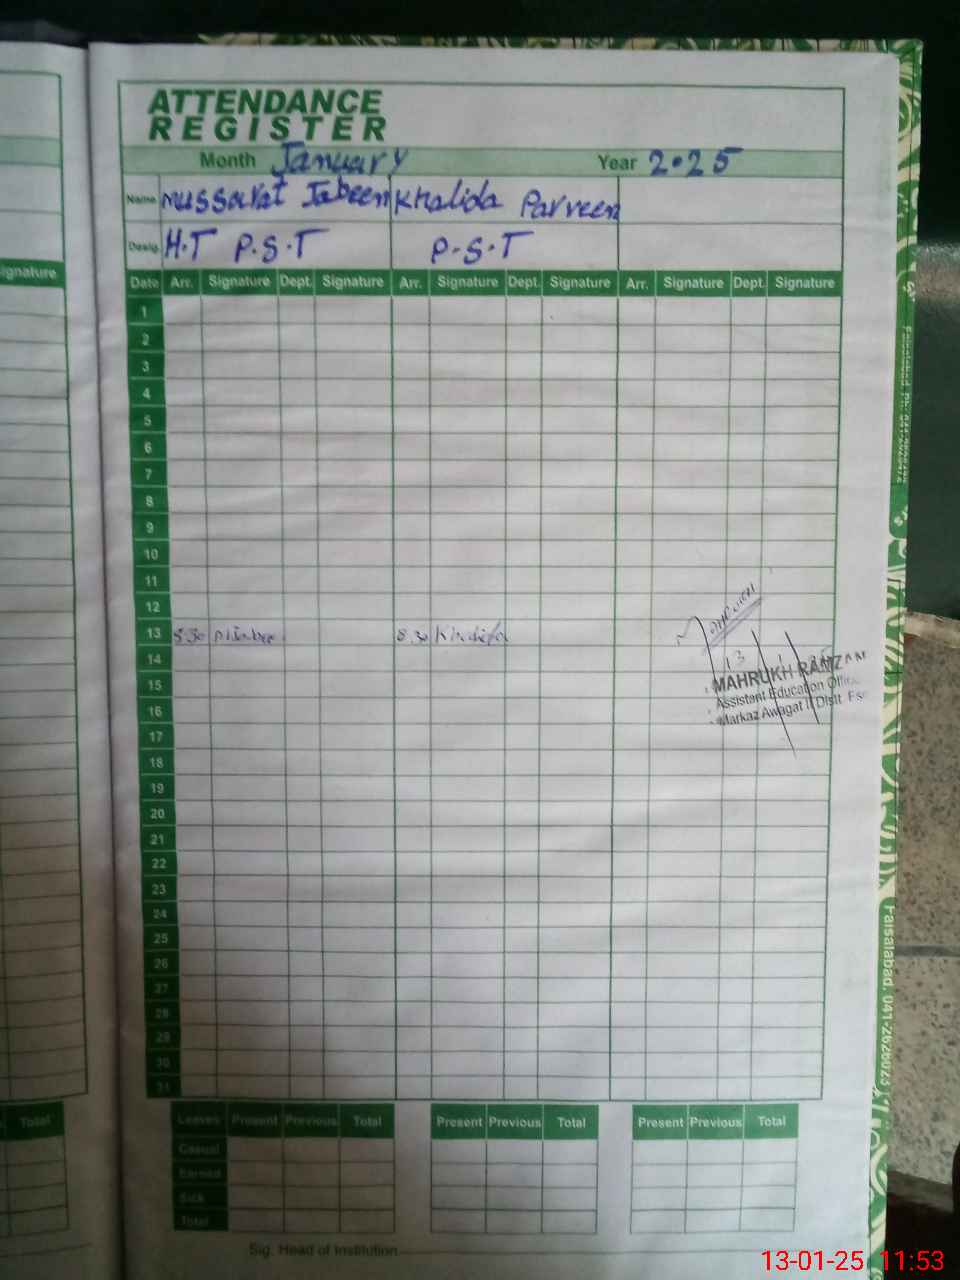 ATTENDANCE
REGISTER
Month January Year 2.025
Name mussarat Jabeen Khalida Parveen
Desig. H.T P.S.T P.S.T
Signature
Date Arr. Signature Dept. Signature Arr. Signature Dept. Signature Arr. Signature Dept. Signature
1
2
3
4
5
6
7
8
9
10
11
12
13 8:30 8:30 Khalida
14
15
16
17
18
19
20
21
22
23
24
25
26
27
28
29
30
31
MAHRUKH RAMZAN
Assistant Education
Markaz Awagat II Distt
Total
Leaves Present Previous Total Present Previous Total Present Previous Total
Casual
Earned
Sick
Total
Sig. Head of Institution
Faisalabad. 041-2626023
13-01-25 11:53